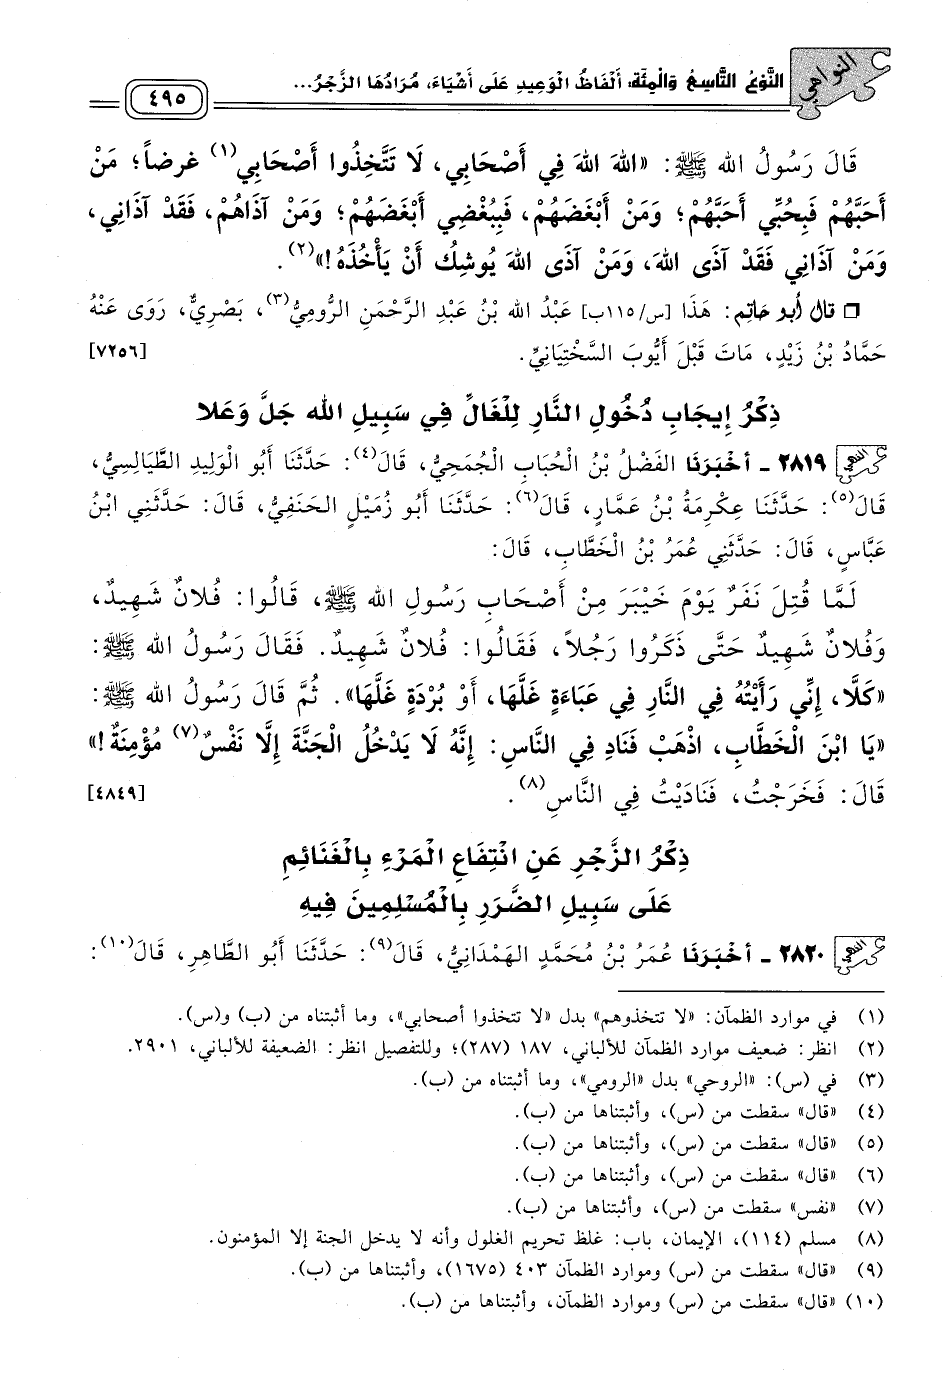 النواهي
النَّوْعُ التَّاسِعُ وَالْمِئَة: أَلْفَاظُ الْوَعِيدِ عَلَى أَشْيَاءَ، مُرَادُهَا الزَّجْرُ...
٤٩٥
قَالَ رَسُولُ الله ﷺ: «اللهَ اللهَ فِي أَصْحَابِي، لَا تَتَّخِذُوا أَصْحَابِي(١) غرضاً؛ مَنْ
أَحَبَّهُمْ فَبِحُبِّي أَحَبَّهُمْ؛ وَمَنْ أَبْغَضَهُمْ، فَبِبُغْضِي أَبْغَضَهُمْ؛ وَمَنْ آذَاهُمْ، فَقَدْ آذَانِي،
وَمَنْ آذَانِي فَقَدْ آذَى اللهَ، وَمَنْ آذَى اللهَ يُوشِكُ أَنْ يَأْخُذَهُ!»(٢).
❒ قال أبو حاتِم: هَذَا [س/١١٥ب] عَبْدُ الله بْنُ عَبْدِ الرَّحْمَنِ الرُّومِيُّ(٣)، بَصْرِيٌّ، رَوَى عَنْهُ
حَمَّادُ بْنُ زَيْدٍ، مَاتَ قَبْلَ أَيُّوبَ السَّخْتِيَانِيِّ. [٧٢٥٦]
ذِكْرُ إِيجَابِ دُخُولِ النَّارِ لِلْغَالِّ فِي سَبِيلِ الله جَلَّ وَعَلا
٢٨١٩ ـ أَخْبَرَنَا الفَضْلُ بْنُ الْحُبَابِ الْجُمَحِيُّ، قَالَ(٤): حَدَّثَنَا أَبُو الْوَلِيدِ الطَّيَالِسِيُّ،
قَالَ(٥): حَدَّثَنَا عِكْرِمَةُ بْنُ عَمَّارٍ، قَالَ(٦): حَدَّثَنَا أَبُو زُمَيْلٍ الحَنَفِيُّ، قَالَ: حَدَّثَنِي ابْنُ
عَبَّاسٍ، قَالَ: حَدَّثَنِي عُمَرُ بْنُ الْخَطَّابِ، قَالَ:
لَمَّا قُتِلَ نَفَرٌ يَوْمَ خَيْبَرَ مِنْ أَصْحَابِ رَسُولِ الله ﷺ، قَالُوا: فُلانٌ شَهِيدٌ،
وَفُلانٌ شَهِيدٌ حَتَّى ذَكَرُوا رَجُلاً، فَقَالُوا: فُلانٌ شَهِيدٌ. فَقَالَ رَسُولُ الله ﷺ:
«كَلَّا، إِنِّي رَأَيْتُهُ فِي النَّارِ فِي عَبَاءَةٍ غَلَّهَا، أَوْ بُرْدَةٍ غَلَّهَا». ثُمَّ قَالَ رَسُولُ الله ﷺ:
«يَا ابْنَ الْخَطَّابِ، اذْهَبْ فَنَادِ فِي النَّاسِ: إِنَّهُ لَا يَدْخُلُ الْجَنَّةَ إِلَّا نَفْسٌ(٧) مُؤْمِنَةٌ!»
قَالَ: فَخَرَجْتُ، فَنَادَيْتُ فِي النَّاسِ(٨). [٤٨٤٩]
ذِكْرُ الزَّجْرِ عَنِ انْتِفَاعِ الْمَرْءِ بِالْغَنَائِمِ
عَلَى سَبِيلِ الضَّرَرِ بِالْمُسْلِمِينَ فِيهِ
٢٨٢٠ ـ أَخْبَرَنَا عُمَرُ بْنُ مُحَمَّدٍ الهَمْدَانِيُّ، قَالَ(٩): حَدَّثَنَا أَبُو الطَّاهِرِ، قَالَ(١٠):
(١) في موارد الظمآن: «لا تتخذوهم» بدل «لا تتخذوا أصحابي»، وما أثبتناه من (ب) و(س).
(٢) انظر: ضعيف موارد الظمآن للألباني، ١٨٧ (٢٨٧)؛ وللتفصيل انظر: الضعيفة للألباني، ٢٩٠١.
(٣) في (س): «الروحي» بدل «الرومي»، وما أثبتناه من (ب).
(٤) «قال» سقطت من (س)، وأثبتناها من (ب).
(٥) «قال» سقطت من (س)، وأثبتناها من (ب).
(٦) «قال» سقطت من (س)، وأثبتناها من (ب).
(٧) «نفس» سقطت من (س)، وأثبتناها من (ب).
(٨) مسلم (١١٤)، الإيمان، باب: غلظ تحريم الغلول وأنه لا يدخل الجنة إلا المؤمنون.
(٩) «قال» سقطت من (س) وموارد الظمآن ٤٠٣ (١٦٧٥)، وأثبتناها من (ب).
(١٠) «قال» سقطت من (س) وموارد الظمآن، وأثبتناها من (ب).